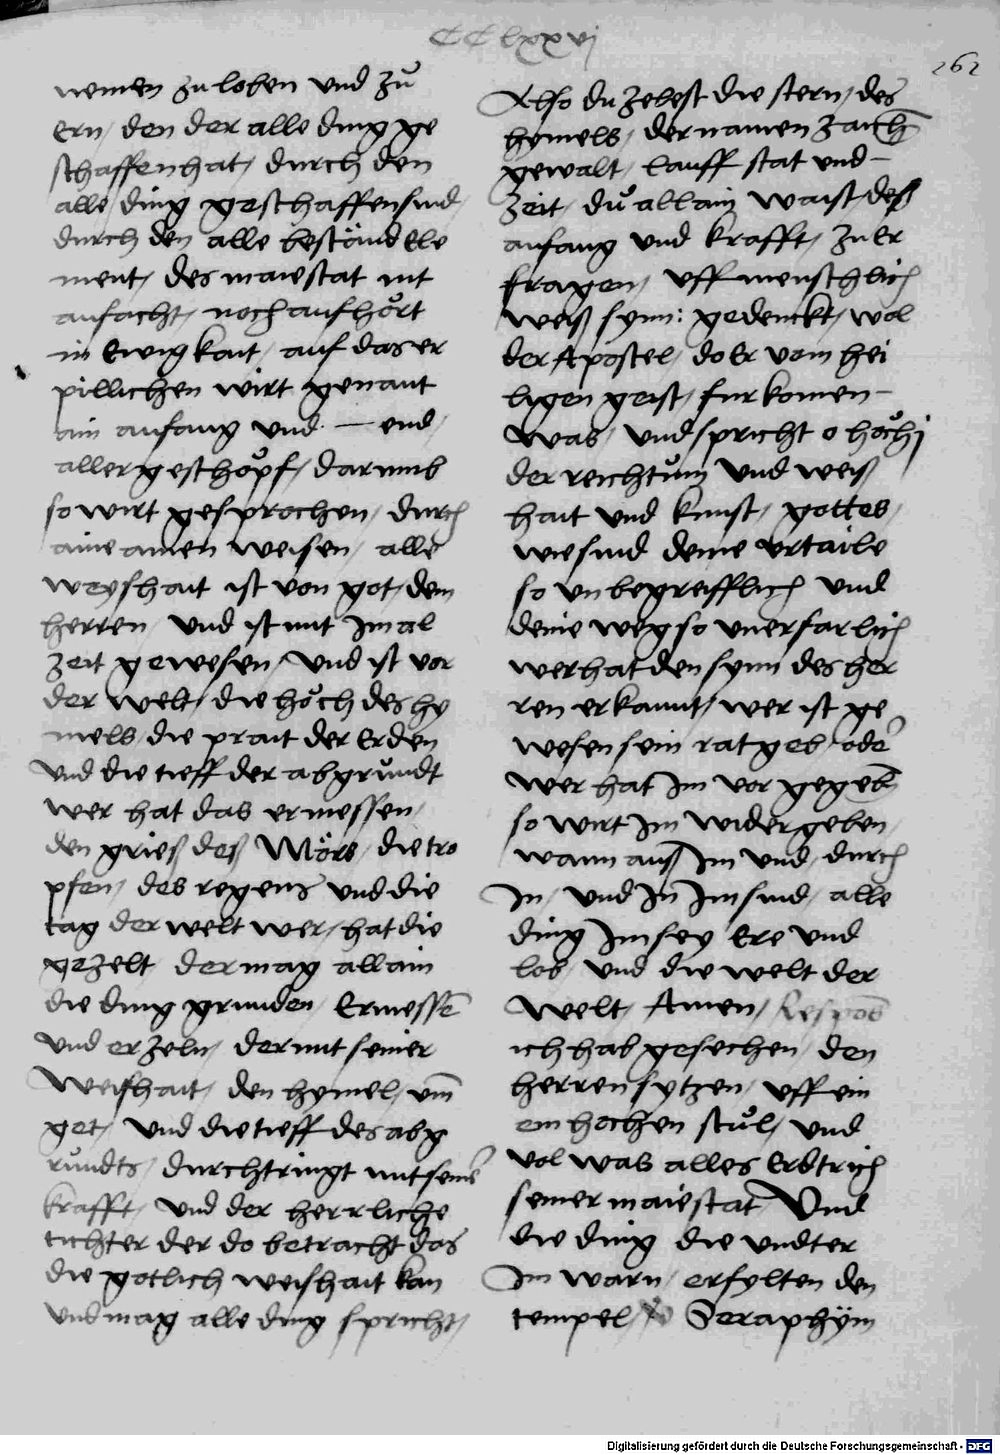 CClxxvj
262
nemen zu loben und zů
Ern / den der alle ding ge
schaffen hat / durch den
alle / ding geschaffen sind /
durch den alle beständ Ele
ment / des maiestat nit
anfacht / noch aufhört
in Ewigkait / auf das er
pillichen wirt genant
ain anfang und – end /
aller geschöpf / darumb
so wirt gesprochen / durch
aine amen weisen / alle
weyshait ist von got / dem
herren / und ist mit Jm al
zeit gewesen / und ist vor
der welt / die höch des hy
mels / die prait der Erden
und die tieff der abgrundt
wer hat das ermessen /
den grieß deß Mörs / die tro
pfen / des regens und die
tag der welt wer / hat die
gezelt der mag allain
die ding grunden / Ermessē
und erzeln / der mit seiner
Weishait / den hymel / vm̄
get / und die tieff des abg
rundts / durchtringt mit seiner
krafft / und der herrliche
tichter der do betracht das
die gotlich weishait kan
und mag alle ding spricht /
Also du zelest die stern / des
hymels / der namen zaichē
gewalt / lauff stat und –
zeit / dů allain waist / deß
anfang und krafft / zu Er
fragen / vff menschlich
weiß synn : gedenckt / wol
der Apostel / do Er vom hei
ligen geist / furkomen –
was / und spricht o höchj
der reichtům und weiß
hait und kunst / gottes /
wie sind deine vrtaile
so vnbegreifflich und
deine weg so vnerfarlich
wer hat den synn des her
ren erkannt / wer ist ge
wesen sein ratgeb / oder
wer hat Jm vor gegebē
so wirt Jm widergeben /
wann auß Jm und / durch
Jn / und Jn Jm sind / alle
ding Jm sey Ere und
lob / und die welt der
welt / Amen / Respons
ich hab gesechen / den
herren sytzen / vff ein
em hochen stůl / und
vol was alles Erdtrich
seiner maiestat / Und
die ding die vndter
Jm warn / erfylten den
tempel / Seraphÿm
Digitalisierung gefördert durch die Deutsche Forschungsgemeinschaft - DFG